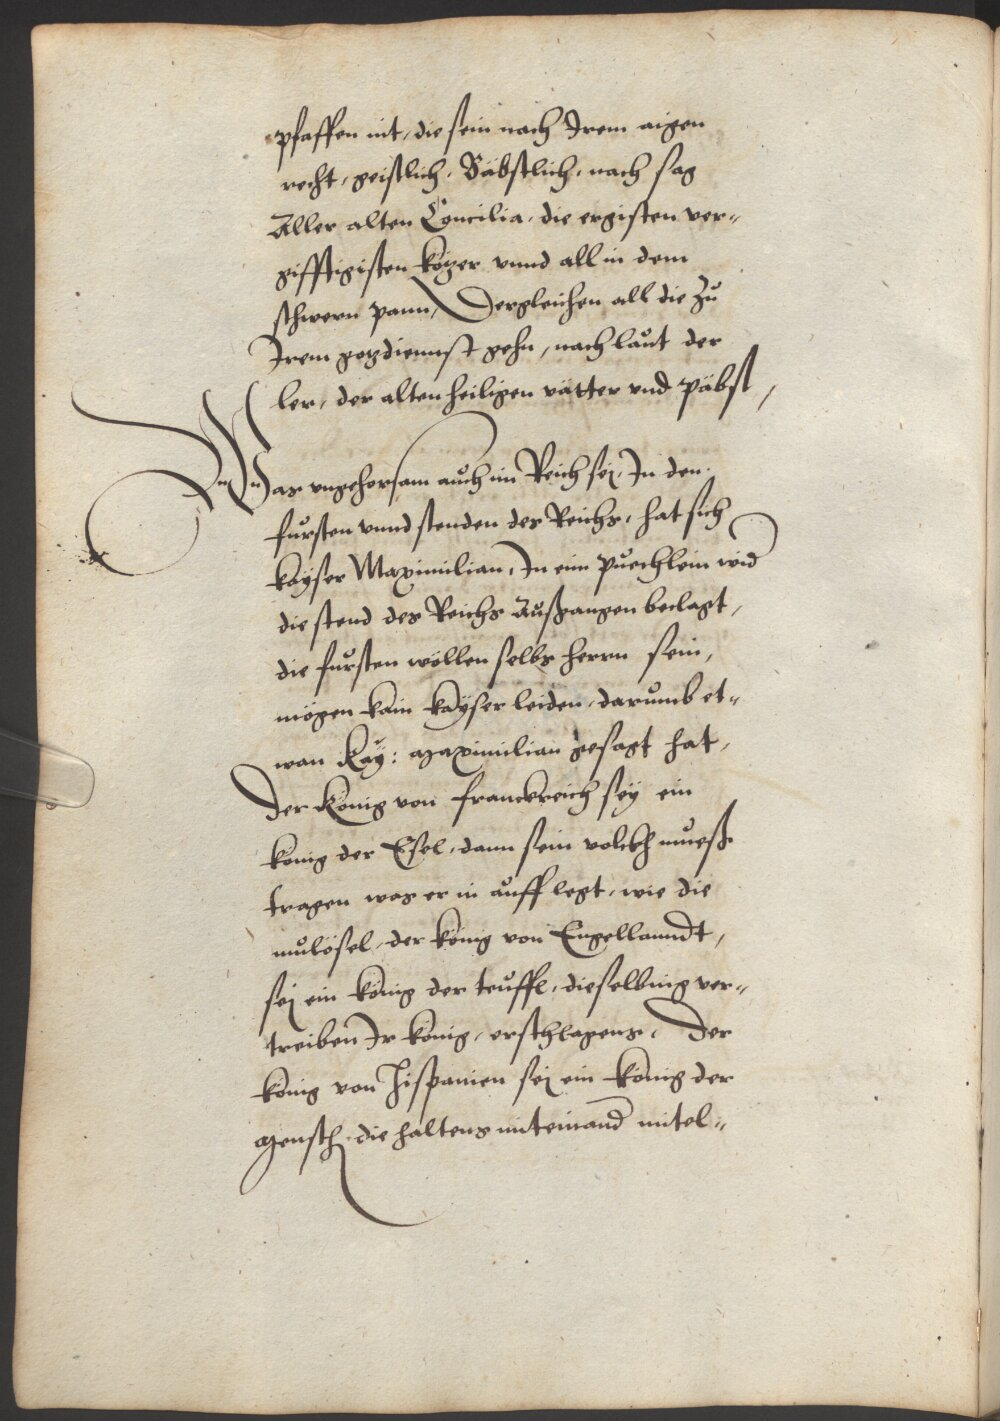 pfaffen nit, die sein nach Irem aigen
recht, geistlich, Bäbstlich, nach sag
Aller alten Concilia, die ergisten ver¬
gifftigisten kötzer vnnd all in dem
schwern pann, Dergleichen all die zů
Irem gotzdiennst gehn, nach laůt der
ler, der alten heiligen vätter vnd päbst,
Was vngehorsam aůch im Reich sej, In den
fůrsten vnnd stenden des Reichs, hat sich
kaÿser Maximilian, In eim půechlein wid
die stend des Reichs Außgangen beclagt,
die fůrsten wöllen selbs herrn sein,
mögen kain kaÿser leiden, darůmb et¬
wan Kaÿ: Maximilian gesagt hat,
Der König von franckreich seÿ ein
konig der Esel, dann sein volckh můeß
tragen was er in aůff legt, wie die
můlösel, der könig von Engellanndt,
sej ein könig der teůffl, dieselbnig ver¬
treiben Ir könig, erschlagens, Der
könig von Hispanien sej ein könig der
Mensch, die haltens miteinand mitel¬